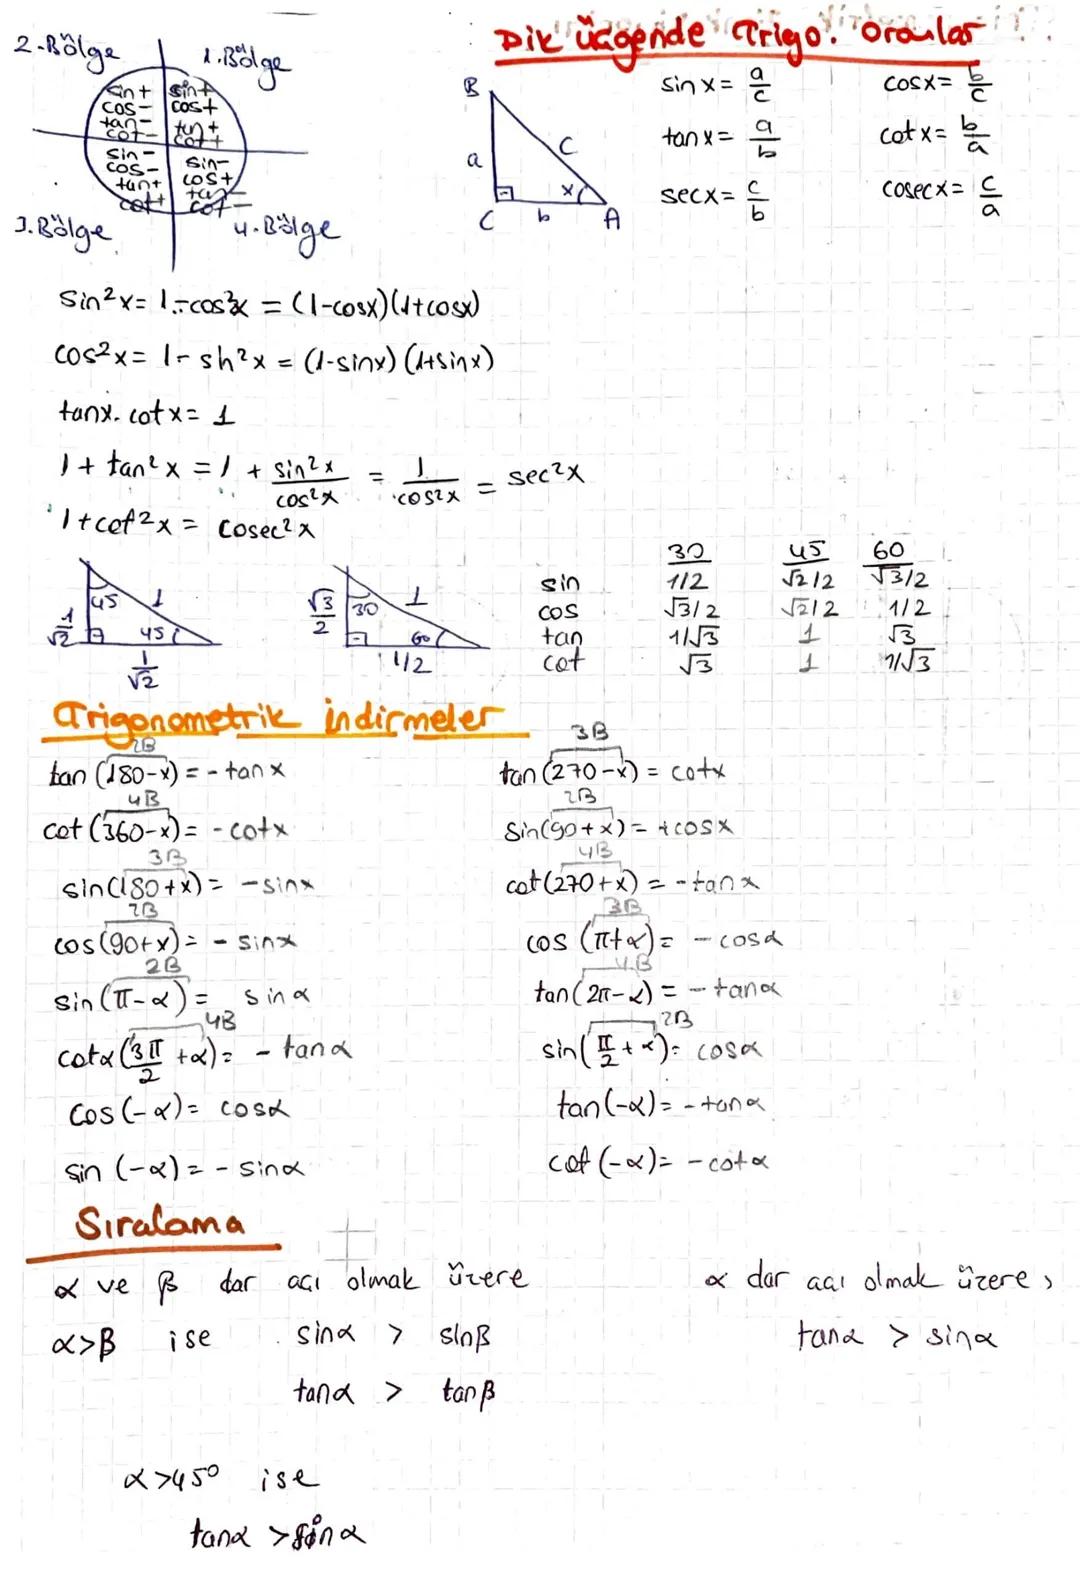 2-Bölge
1.Bölge
sin+
cos-
tan-
cot-
sin+
cos+
tan+
cot+
sin-
cos-
tan+
cot+
sin-
cos+
tan-
cot-
3.Bölge
4.Bölge
Dik üçgende Trigo. Oranlar
B
a
c
x
C
b
A
sin x = a/c
cosx = b/c
tan x = a/b
cot x = b/a
secx = c/b
cosecx = c/a
sin²x = 1-cos²x = (1-cosx)(1+cosx)
cos²x = 1 - sin²x = (1-sinx)(1+sinx)
tanx. cotx = 1
1 + tan²x = 1 + sin²x/cos²x = 1/cos²x = sec²x
1+cot²x = cosec²x
45
1
1/√2
45
1/√2
√3/2
30
1
60
1/2
30 45 60
sin 1/2 √2/2 √3/2
cos √3/2 √2/2 1/2
tan 1/√3 1 √3
cot √3 1 1/√3
Trigonometrik indirmeler
2B
tan (180-x) = - tan x
4B
cot (360-x) = - cotx
3B
sin(180+x) = -sinx
2B
cos(90+x) = - sinx
2B
sin (π-α) = sinα
4B
cotα(3π/2 +α) = - tanα
cos (-α) = cosα
sin (-α) = - sinα
3B
tan (270-x) = cotx
2B
sin(90+x) = +cosx
4B
cot(270+x) = -tanx
3B
cos (π+α) = - cosα
4B
tan(2π-α) = - tanα
2B
sin(π/2 + α) = cosα
tan(-α) = - tanα
cot (-α) = - cotα
Sıralama
α ve β dar açı olmak üzere
α>β ise sinα > sinβ
tanα > tanβ
α>45° ise
tanα > sinα
α dar açı olmak üzere,
tanα > sinα